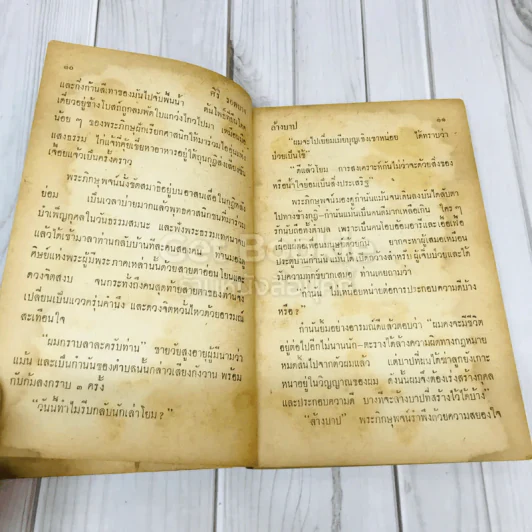 ๑๐
ศิริ
และกิ่งก้านสีเทาของมันไปจับพื้นน้ำ ต้นโพธิ์
เดี่ยวอยู่ข้างโบสถ์ถูกลมพัดใบแกว่งไกวไปมา เหมือน
น้อย ๆ ของพระภิกษุผู้กเรียกศาสนิกให้มาร่วม
แสงธรรม ไก่แจ้ที่คุ้ยเขี่ยหาอาหารอยู่ใต้ถุนกุฎิ
เจื้อยแจ้วเป็นครั้งคราว
พระภิกษุพจน์นั่งขัดสมาธิอยู่บนอาสนะ
ย่อม เป็นเวลาบ่ายมากแล้วพุทธศาสนิกชนที่มา
บำเพ็ญกุศลในวันธรรมสวนะ และฟังพระธรรมเทศนา
แล้วได้เข้ามาลาท่านกลับบ้าน
ศิษย์แห่งพระผู้มีพระภาคเหล่านั้นด้วยสายตาอ่อนโยนและ
ดวงจิตสงบ จนกระทั่งถึงคนสุดท้ายสายตาของท่านจึง
เปลี่ยนเป็นแวววครุ่นคำนึง และดวงจิตหวั่นไหวด้วยอารมณ์
สะเทือนใจ
"ผมกราบลาละครับท่าน" ชายวัยสูงอายุผู้มีนามว่า
แม้น และเป็นกำนันของตำบลนั้นกล่าวเสียงกังวาน พร้อม
กับก้มลงกราบ ๓ ครั้ง
"วันนี้ทำไมรีบกลับนักเล่าโยม?"
ล้างบาป
๑๑
"ผมจะไปเยี่ยมเมียบุญเชิงเขาหน่อย ได้ทราบว่า
ป่วยเป็นไข้"
"ดีแล้วโยม การสงเคราะห์กันไม่ว่าจะด้วยสิ่งของ
หรือน้ำใจย่อมเป็นสิ่งประเสริฐ"
พระภิกษุพจน์มองตามกำนันแม้นเดินลงบันไดลับตา
ไปทางข้างกุฎิ กำนันแม้นเป็นคนดีมากเหลือเกิน ใคร ๆ
รักนับถือทั้งตำบล เพราะเป็นคนโอบอ้อมอารีและเอื้อเฟื้อ
ยากจะหาผู้เสมอเหมือน
ได้รับความทุกข์ยากเสมอ ท่านเคยถามว่า
"กำนัน ไม่เหนื่อยหน่ายต่อการประกอบความดีบ้าง
หรือ?"
กำนันยิ้มอย่างอารมณ์ดีแล้วตอบว่า "ผมคงจะมีชีวิต
อยู่ต่อไปอีกไม่นานนัก ตะรางได้ล้างความผิดทางกฎหมาย
หมดสิ้นไปจากตัวผมแล้ว แต่บาปที่ผมได้ฆ่าลูกยังเกาะ
หนาอยู่ในวิญญาณของผม ดังนั้นผมจึงต้องเร่งสร้างกุศล
และประกอบความดี บางทีจะล้างบาปที่สร้างไว้ได้บ้าง"
"ล้างบาป" พระภิกษุพจน์รำพึงด้วยความสยองใจ